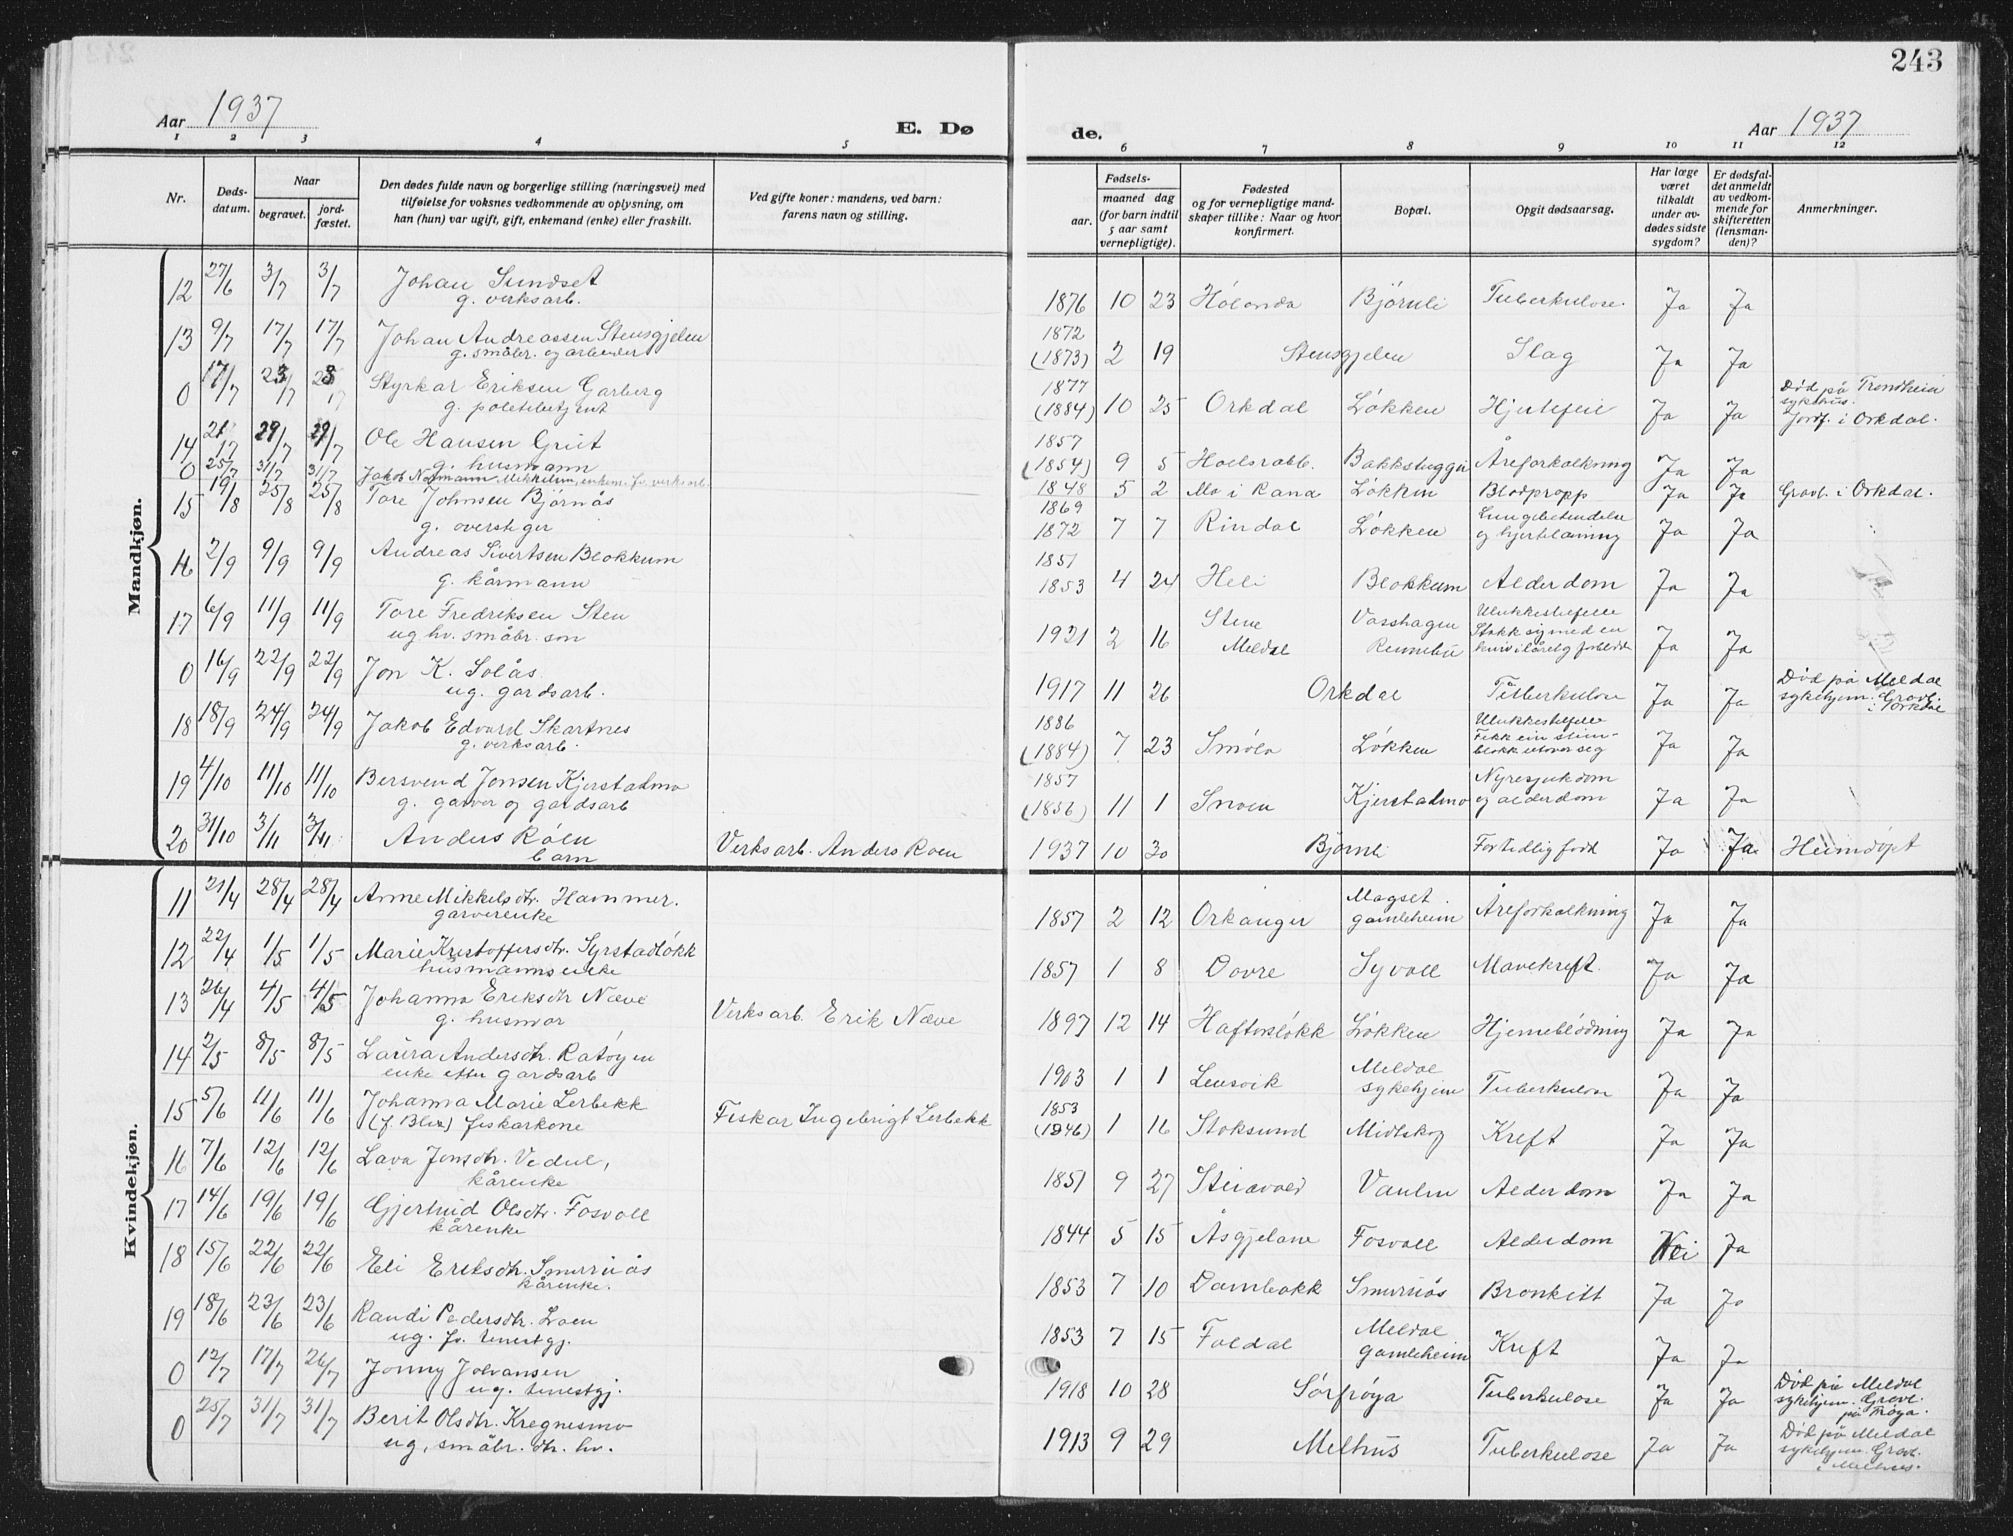 243
Aar 1937 E. Døde. Aar 1937
1 2 3 4 5 6 7 8 9 10 11 12
Nr. Døds-datum. Naar begravet. jord-fæstet. Den dødes fulde navn og borgerlige stilling (næringsvei) med tilføielse for voksnes vedkommende av oplysning, om han (hun) var ugift, gift, enkemand (enke) eller fraskilt. Ved gifte koner: mandens, ved barn: farens navn og stilling. Fødsels- aar. maaned dag (for barn indtil 5 aar samt vernepligtige). Fødested og for vernepligtige mandskaper tillike: Naar og hvor konfirmert. Bopæl. Opgit dødsaarsag. Har læge været tilkaldt under avdødes sidste sygdom? Er dødsfaldet anmeldt av vedkommende for skifteretten (lensmanden)? Anmerkninger.
Mandkjøn.
12 27/6 3/7 3/7 Johan Sundset g. verksarb. 1876 10 23 Hølonda Bjørnli Tuberkulose. Ja Ja
13 9/7 17/7 17/7 Johan Andreassen Stensgjelen g. småbr. og arbeider 1872 (1873) 2 19 Stensgjelen Slag Ja Ja
0 17/7 23/7 23/7 Styrkar Eriksen Garberg g. politibetjent 1877 (1884) 10 25 Orkdal Løkken Hjertefeil Ja Ja Død på Trondheim sykhus. Jordf. i Orkdal.
14 21/7 29/7 29/7 Ole Hansen Griit g. husmann 1857 (1854) 9 5 Hoelsrabb. Bakkstuggu Åreforkalkning Ja Ja
0 25/7 31/7 31/7 Jakob Normann Mikkelsen, enkem. fv. verksarb. 1848 5 2 Mo i Rana Løkken Blodpropp Ja Ja Gravl. i Orkdal.
15 19/8 25/8 25/8 Tore Johnsen Bjørnås g. overstiger 1869 1872 7 7 Rindal Løkken Lungebetendelse og hjertelamning Ja Ja
16 2/9 9/9 9/9 Andreas Sivertsen Blokkum g. kårmann 1851 1853 4 24 Heli Blokkum Alderdom Ja Ja
17 6/9 11/9 11/9 Tore Fredriksen Sten ug hv. småbr. son 1921 2 16 Stene Meldal Vasshagen Rennebu Ulukkestilfelle Stakk sig med en kniv i låret Ja Ja
0 16/9 22/9 22/9 Jon K. Solås. ug. gardsarb. 1917 11 26 Orkdal Tuberkulose Ja Ja Død på Meldal sykehjem. Gravl. i Orkdal
18 18/9 24/9 24/9 Jakob Edvard Skartnes g. verksarb. 1886 (1884) 7 23 Smøla Løkken Ulukkestilfelle Fekk ein steinblokk utover seg Ja Ja
19 4/10 11/10 11/10 Bersvend Jonsen Kjerstadmo g. garver og gardsarb 1857 (1856) 11 1 Snoen Kjerstadmo Nyresjukdom og alderdom Ja Ja
20 31/10 3/11 3/11 Anders Roen barn Verksarb. Anders Roen 1937 10 30 Bjørnli Fortidlig født Ja Ja Heimdøpt
Kvindekjøn.
11 21/4 28/4 28/4 Anne Mikkelsdtr. Hammer. garverenke 1857 2 12 Orkanger Magset. gamleheim Åreforkalkning Ja Ja
12 22/4 1/5 1/5 Marie Kristoffersdtr. Syrstadløkk husmannsenke 1857 1 8 Dovre Syvoll Mavekreft. Ja Ja
13 26/4 4/5 4/5 Johanna Eriksdtr Næve g. husmor Verksarb. Erik Næve 1897 12 14 Haftorsløkk Løkken Hjerneblødning Ja Ja
14 2/5 8/5 8/5 Laura Andersdtr. Ratøyen enke etter gardsarb 1903 1 1 Lensvik Meldal sykehjem Tuberkulose Ja Ja
15 5/6 11/6 11/6 Johanna Marie Lerbekk (f. Blix) fiskarkone Fiskar Ingebrigt Lerbekk 1853 (1846) 1 16 Stoksund Midtskog Kreft Ja Ja
16 7/6 12/6 12/6 Lava Jonsdtr. Vedul, kårenke 1851 9 27 Steiavold Vaulen Alderdom Ja Ja
17 14/6 19/6 19/6 Gjertrud Olsdtr. Fosvoll kårenke 1844 5 15 Åsgjelane Fosvoll Alderdom Nei Ja
18 15/6 22/6 22/6 Eli Eriksdtr. Smurnås kårenke. 1853 7 10 Dambakk Smurnås Bronkitt Ja Ja
19 18/6 23/6 23/6 Randi Pedersdtr. Loen ug. fv. tenestgj. 1853 7 15 Foldal Meldal gamleheim Kreft Ja Ja
0 12/7 17/7 26/7 Jonny Johansen ug. tenestgj. 1918 10 28 Sørfrøya Tuberkulose Ja Ja Død på Meldal sykehjem. Gravl. på Frøya.
0 25/7 31/7 31/7 Berit Olsdtr. Kregnesmo ug, småbr. dtr. hv. 1913 9 29 Melhus Tuberkulose Ja Ja Død på Meldal sykehjem. Gravl. i Melhus.